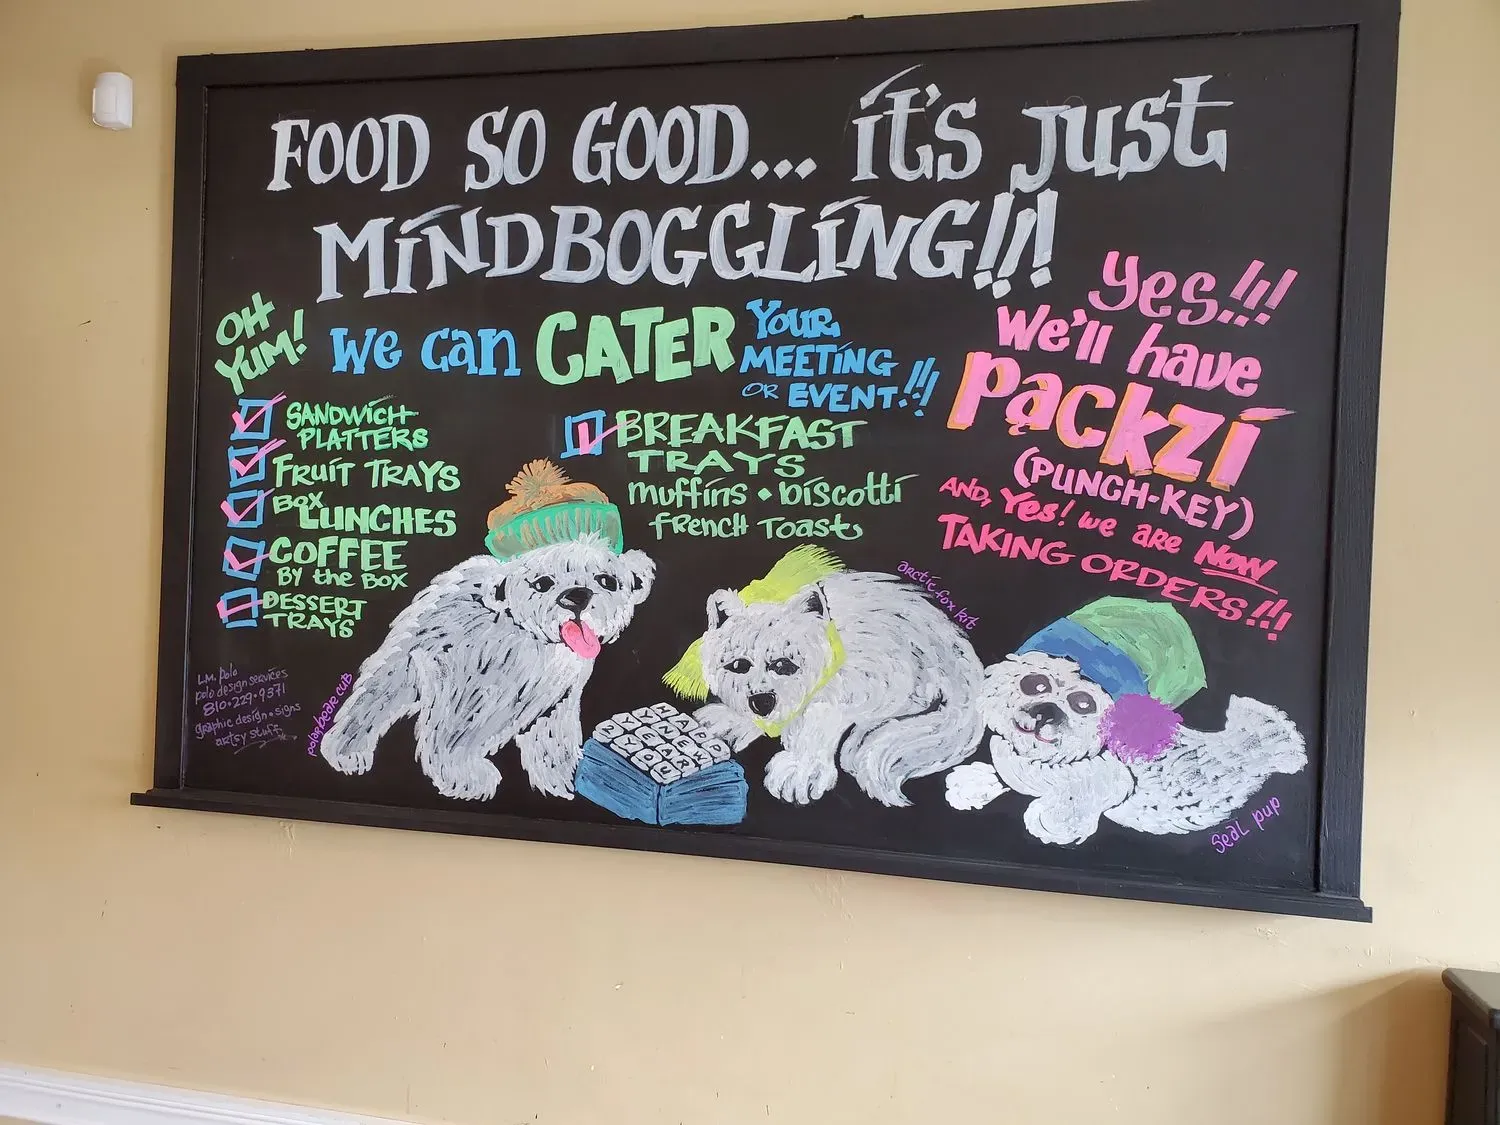 FOOD SO GOOD... it's just
MINDBOGGLING!!!
OH
YUM!
We can CATER
Your
MEETING
OR EVENT!!!
SANDWICH
PLATTERS
FRUIT TRAYS
BOX
LUNCHES
COFFEE
BY the BOX
DESSERT
TRAYS
BREAKFAST
TRAYS
muffins • biscotti
french toast
Yes!!!
We'll have
Pączki
(PUNCH-KEY)
AND, Yes! we are NOW
TAKING ORDERS!!!
L.M. Polo
polo design services
810•229•9371
graphic design • signs
artsy stuff
polar bear cub
HAPP
YNEW
YEAR
2YOU
arctic fox kit
Seal pup